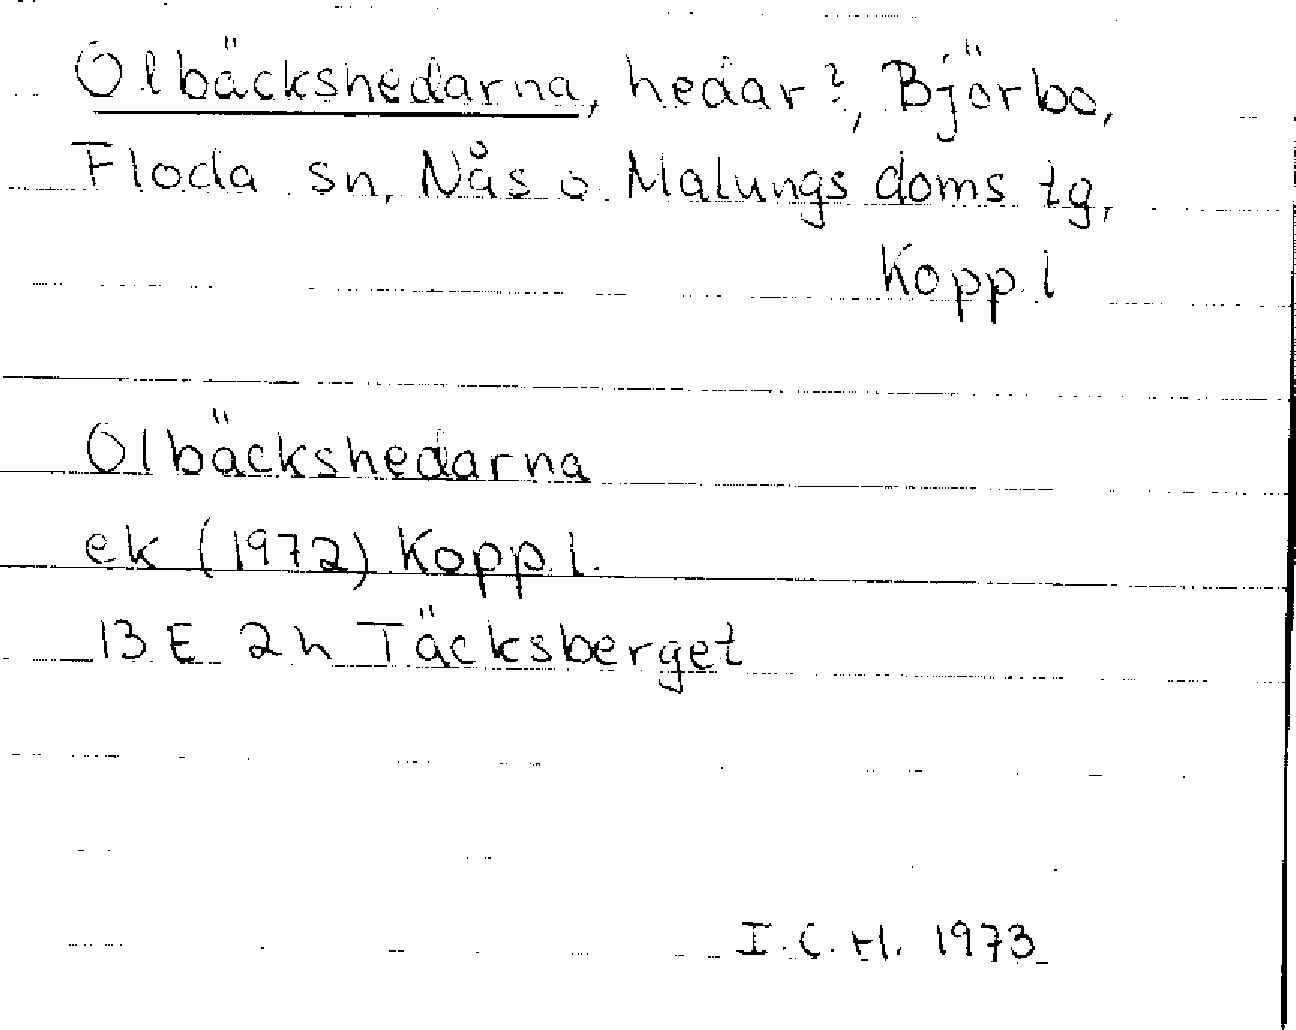 Olbäckshedarna, hedar?, Björbo,
Floda sn, Nås o. Malungs doms tg,
Kopp. l
Olbäckshedarna
ek (1972) Kopp. l.
13 E 2h Täcksberget
I.C.H. 1973